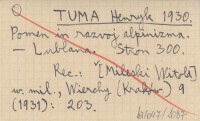 TUMA Henryk 1930.
Pomen in razvoj alpinizma.
— Lublana. Stron 300.
Rec.: [Mileski Witold]
w. mil., Wierchy (Kraków) 9
(1931): 203.